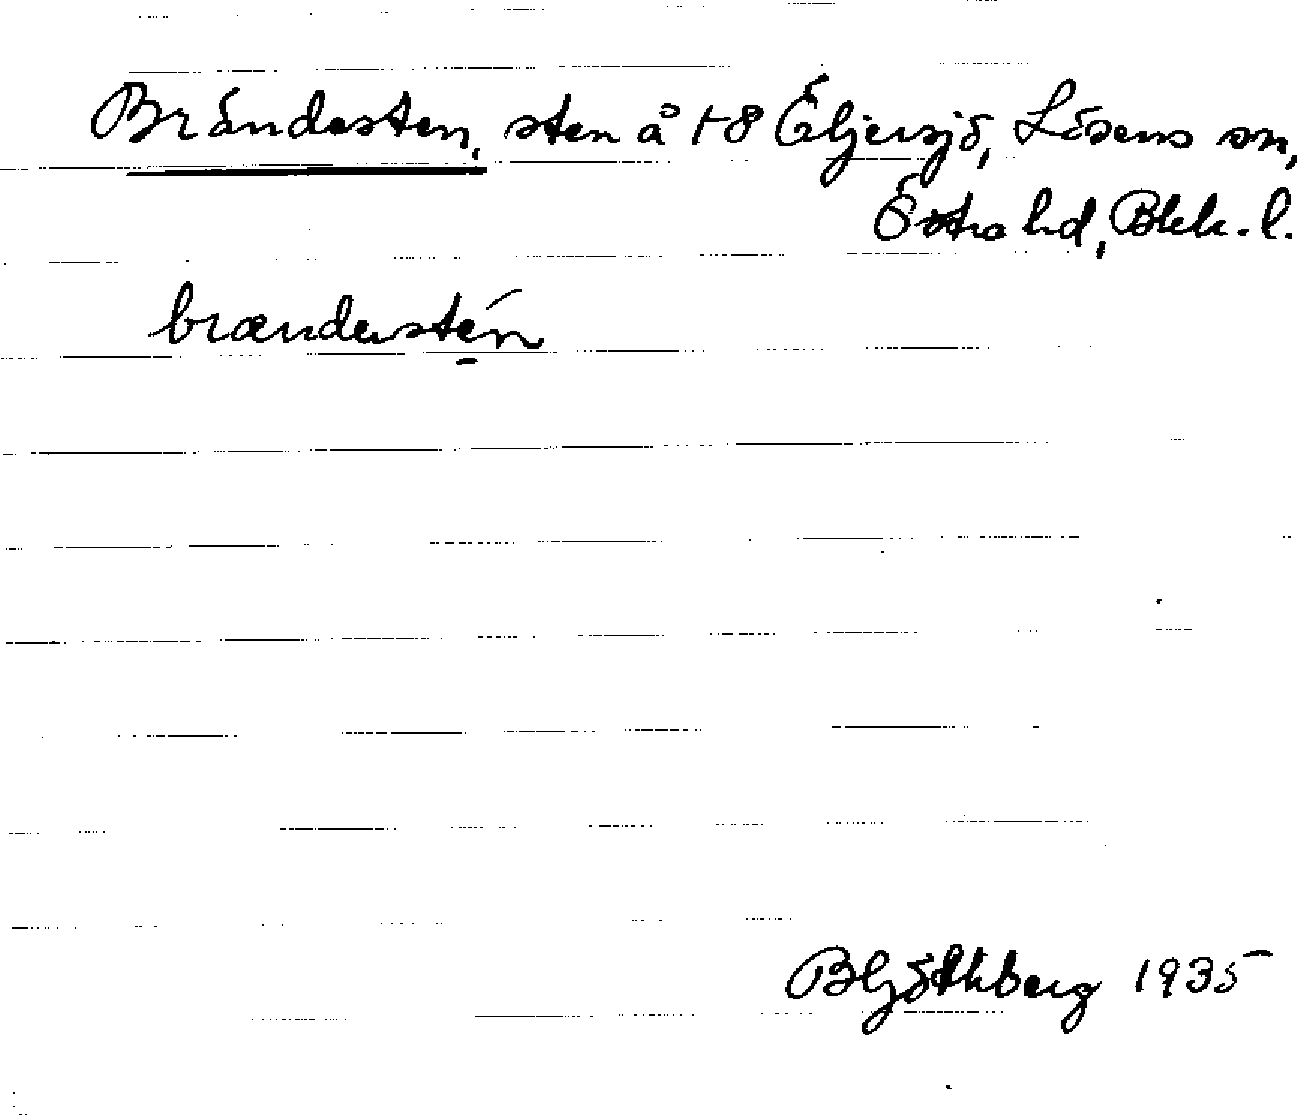 Brändesten, sten å 1-8 Öljersjö, Lösens sn,
Östra hd, Blek. l.
brændestén
B Ljöthberg 1935